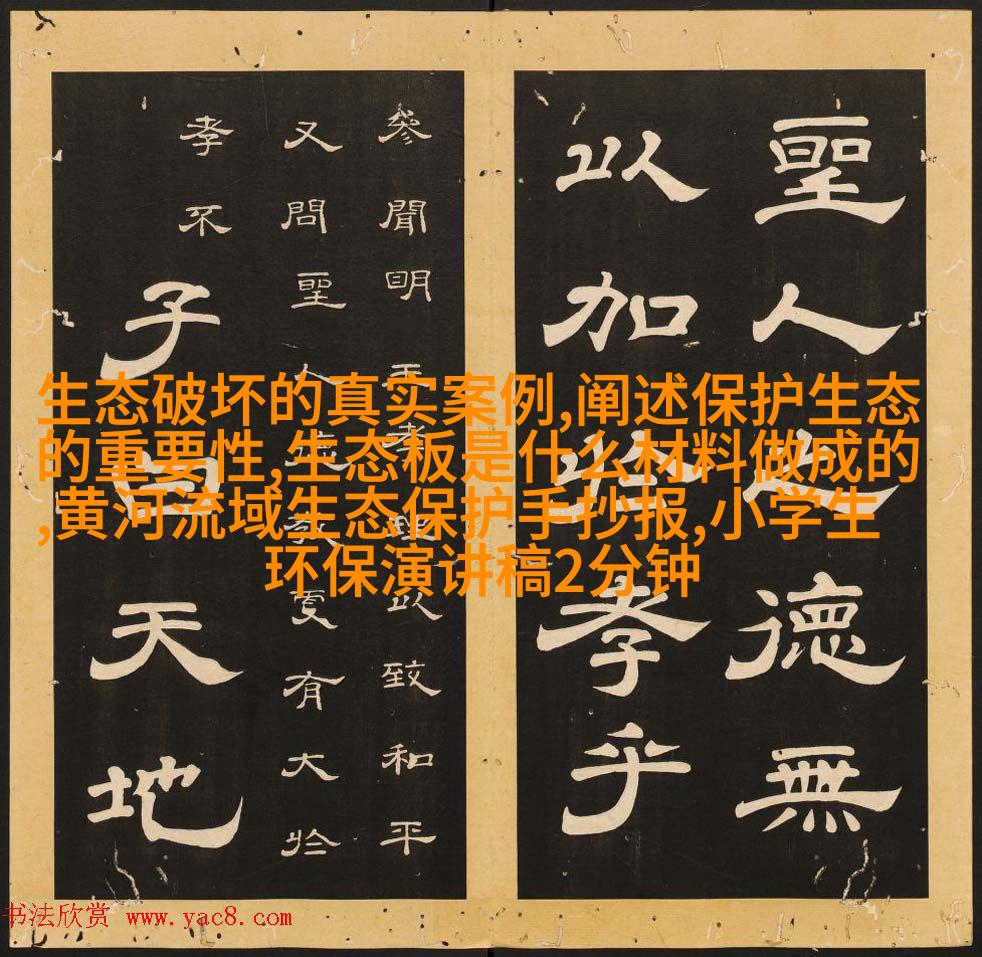 聖人之德無
以加於孝乎
參聞明王孝理以致和平
又問聖人德教更有大於
孝不
子曰天地
生态破坏的真实案例,阐述保护生态
的重要性,生态板是什么材料做成的
,黄河流域生态保护手抄报,小学生
环保演讲稿2分钟
书法欣赏 www.yac8.com